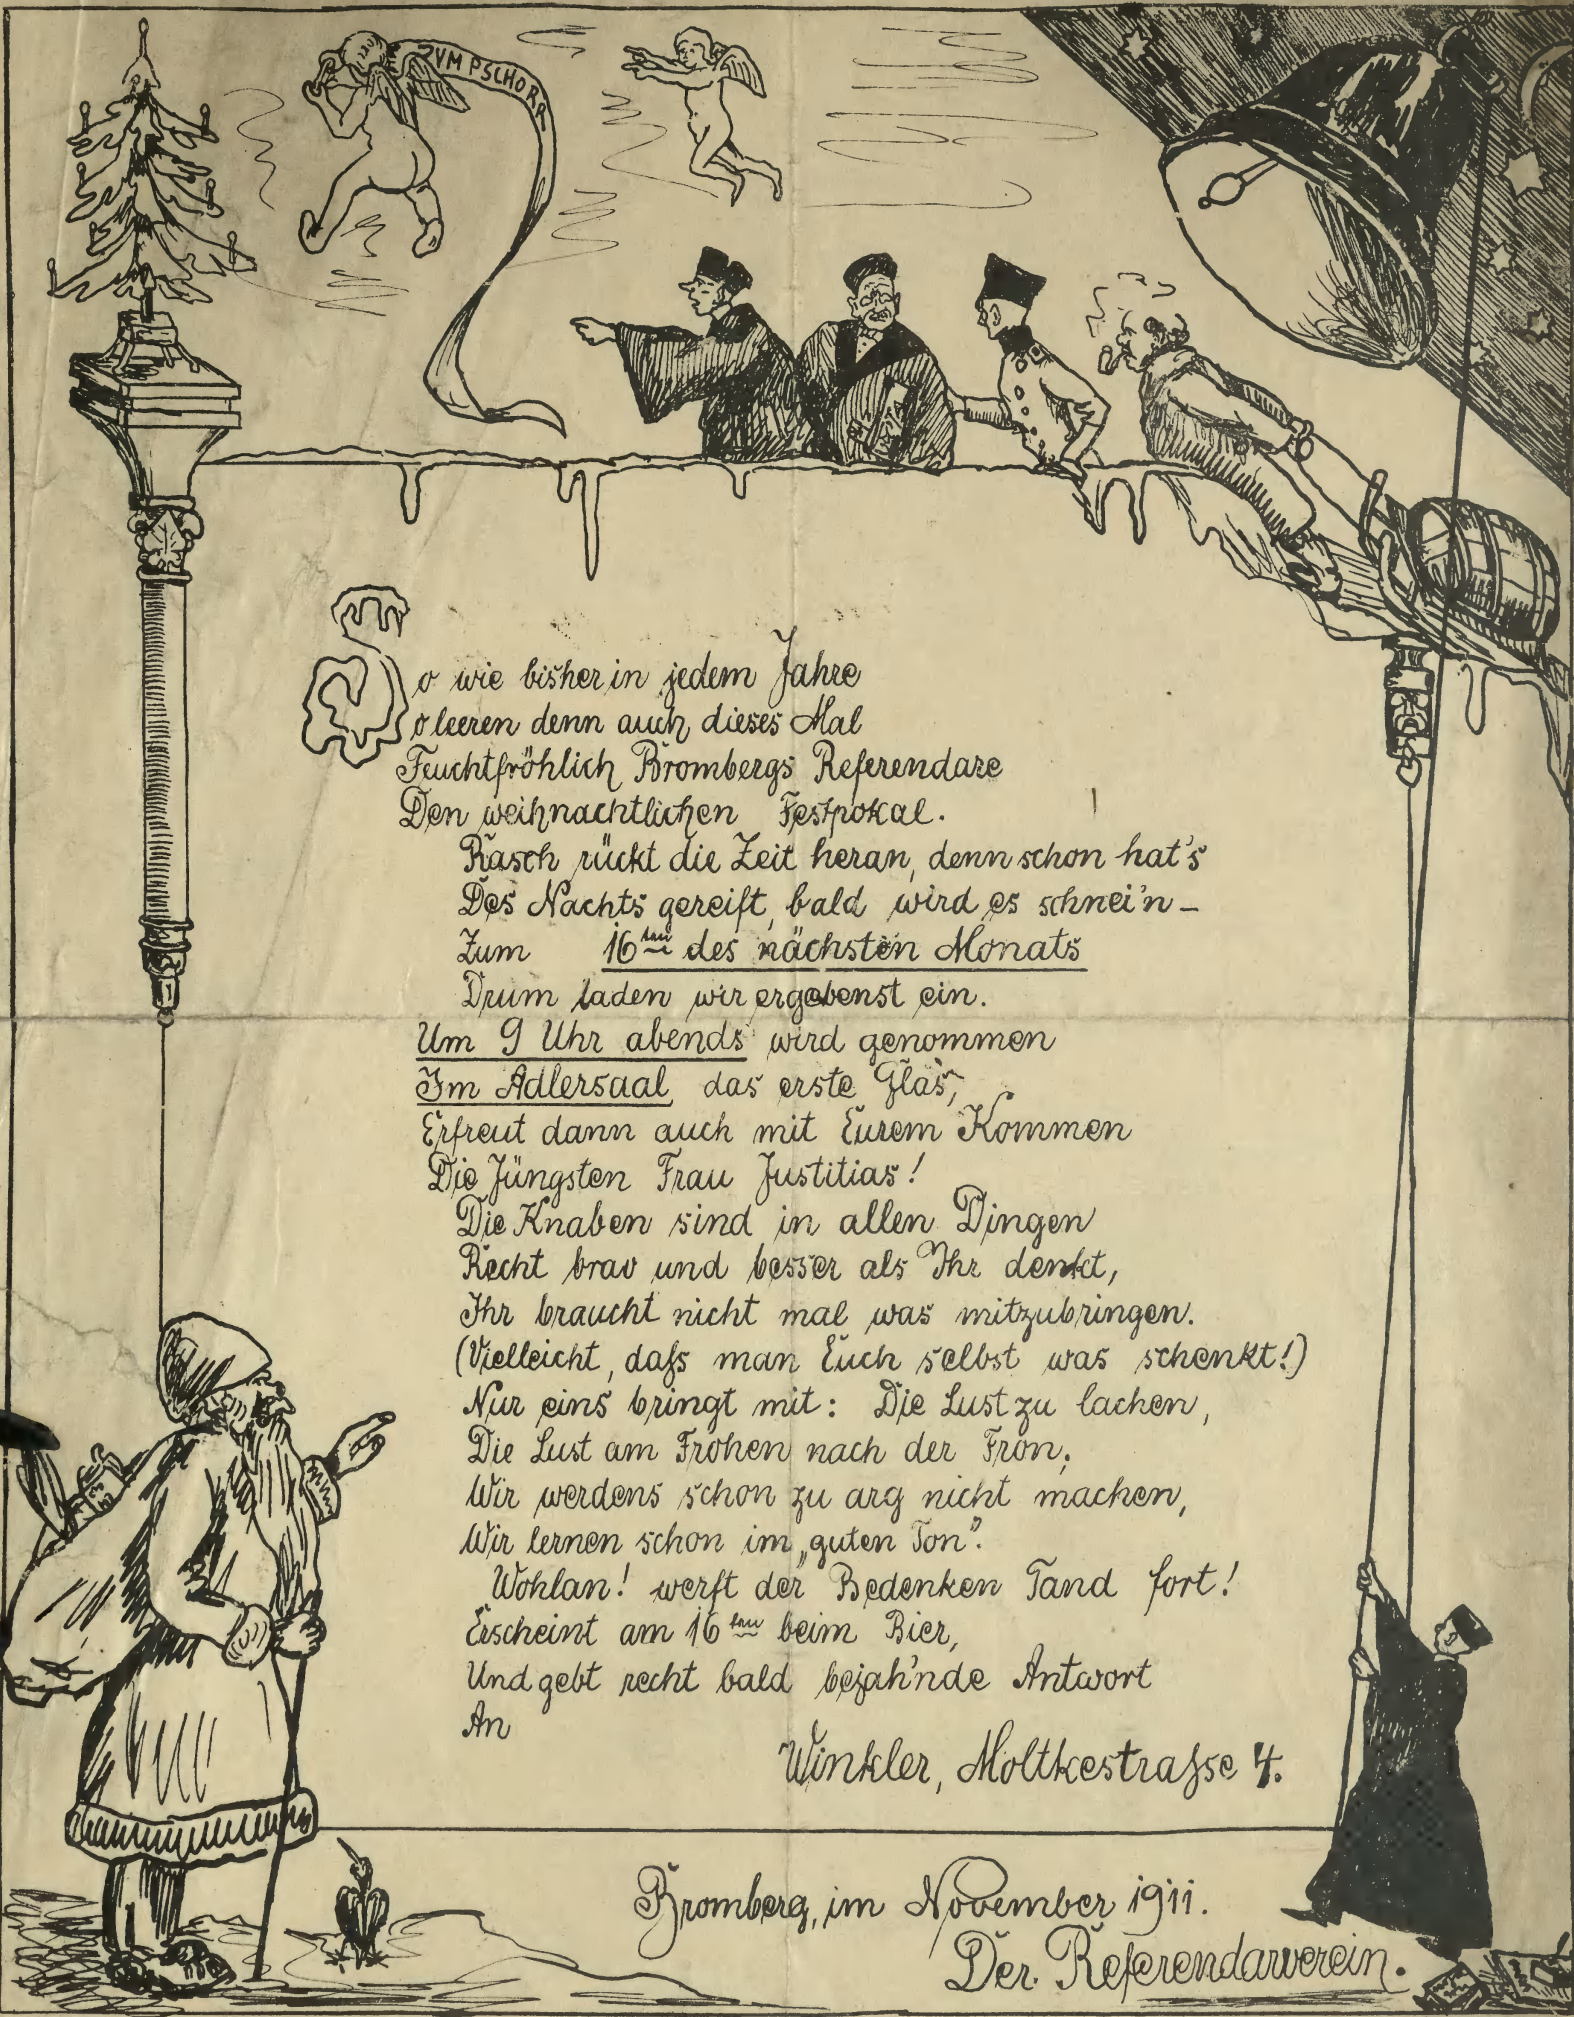 ZUM PSCHORR
So wie bisher in jedem Jahre
So leeren denn auch dieses Mal
Feuchtfröhlich Brombergs Referendare
Den weihnachtlichen Festpokal.
Rasch rückt die Zeit heran, denn schon hat's
Des Nachts gereift, bald wird es schnei'n –
Zum 16ten des nächsten Monats
Drum laden wir ergebenst ein.
Um 9 Uhr abends wird genommen
Im Adlersaal das erste Glas,
Erfreut dann auch mit Eurem Kommen
Die Jüngsten Frau Justitias!
Die Knaben sind in allen Dingen
Recht brav und besser als Ihr denkt,
Ihr braucht nicht mal was mitzubringen.
(Vielleicht, dafs man Euch selbst was schenkt!)
Nur eins bringt mit: Die Lust zu lachen,
Die Lust am Frohen nach der Fron;
Wir werdens schon zu arg nicht machen,
Wir lernen schon im „guten Ton".
Wohlan! werft der Bedenken Tand fort!
Erscheint am 16ten beim Bier,
Und gebt recht bald bejah'nde Antwort
An
Winkler, Moltkestrafse 4.
Bromberg, im November 1911.
Der Referendarverein.